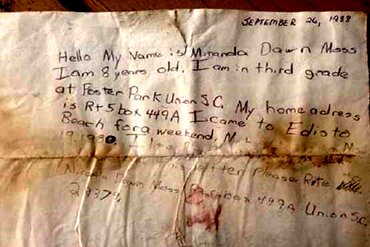 SEPTEMBER 26, 1988
Hello My Name is Miranda Dawn Moss
I am 8 years old. I am in third grade
at Foster Park Union S.C. My home adress
is Rt 5 box 449A I came to Edisto
Beach for a weekend. M
letter Please Rite
Miranda Dawn Moss Rt 5 box 449A Union S.C.
29379